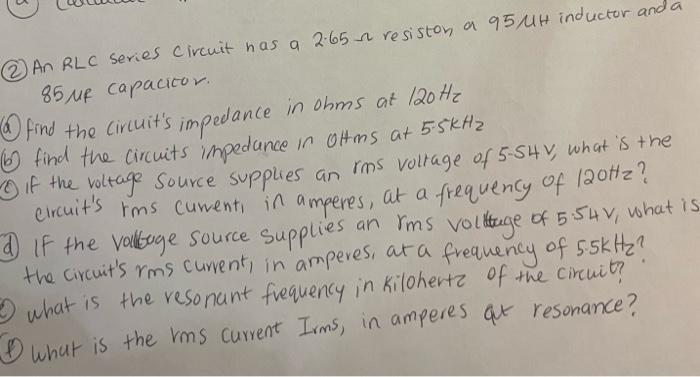 ② An RLC series circuit has a 2.65 Ω resistor, a 95 μH inductor and a
85 μF capacitor.
ⓐ find the circuit's impedance in ohms at 120 Hz
ⓑ find the circuits impedance in OHms at 5.5kHz
ⓒ if the voltage source supplies an rms voltage of 5.54V, what is the
circuit's rms current, in amperes, at a frequency of 120Hz?
ⓓ IF the voltage source supplies an rms voltage of 5.54V, what is
the circuit's rms current, in amperes, at a frequency of 5.5kHz?
ⓔ what is the resonant frequency in kilohertz of the circuit?
ⓕ what is the rms current Irms, in amperes at resonance?